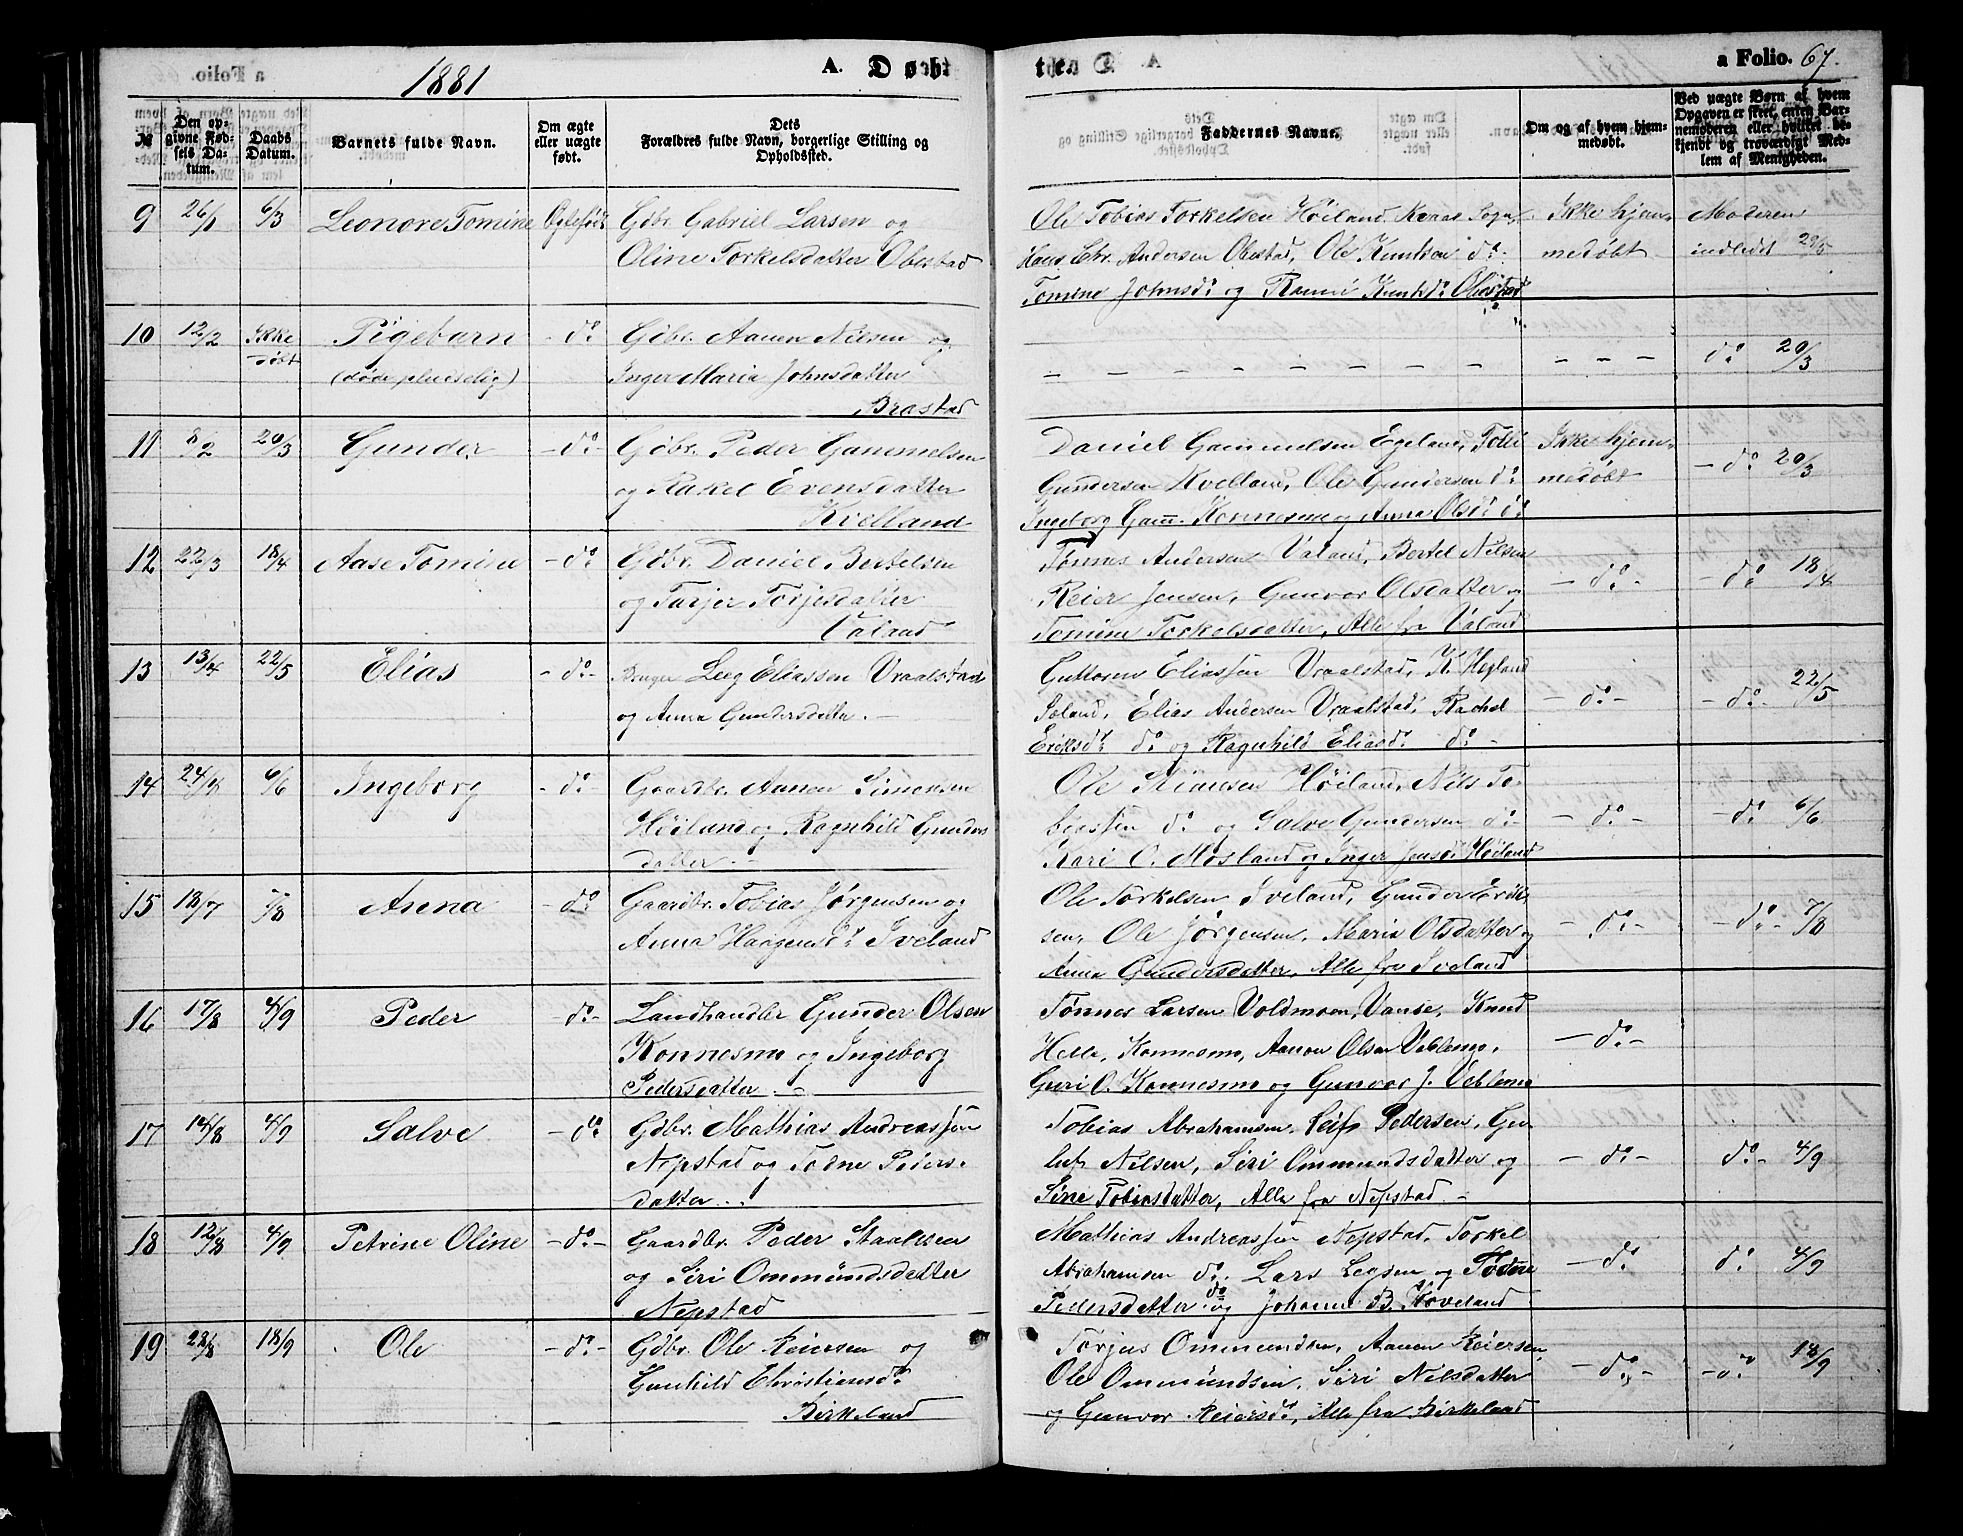 1881
A. Døbte.
a Folio. 67.
№
Den opgivne Fødsels Datum.
Daabs Datum.
Barnets fulde Navn.
Om ægte eller uægte født.
Dets Forældres fulde Navn, borgerlige Stilling og Opholdssted.
Faddernes Navne.
Om og af hvem hjemmedøbt.
Ved uægte Børn af hvem Opgaven er skeet, enten Barnemoderen eller hvilket bekjendt og troværdigt Medlem af Menigheden.
9 26/1 6/3 Leonore Tomine Ægtefødt Gdbr. Gabriel Larsen og
Oline Torkelsdatter Obestad
Ole Tobias Torkelsen Høiland, Sogn,
Hans Chr. Andersen Obestad, Ole Knutsen do
Tomine Johnsd. og Knutsd. Obestad
Ikke hjem-
medøbt
Moderen
indledt 29/5
10 12/2 Ikke
døbt
Pigebarn
(døde pludselig)
- do Gdbr. Aanen Nilsen og
Inger Maria Johnsdatter
Brastad
- - - - - - - - - - - do 20/3
11 8/2 20/3 Gunder - do - Gdbr. Peder Gammelsen
og Rakel Evensdatter
Kvelland
Daniel Gammelsen Egeland,
Gundersen Kvelland, Ole Gundersen do
Ingeborg Gam. Konnesmo og Anna Olsd. do
Ikke hjem-
medøbt
- do 20/3
12 22/3 18/4 Aase Tomine - do - Gdbr. Daniel Bertelsen
og Tarjer Torjesdatter
Valand
Tønnes Andersen Valand, Bertel Nilsen
Reier Jensen, Gunvor Olsdatter og
Tomine Torkelsdatter, Alle fra Valand
- do - - do 18/4
13 13/4 22/5 Elias - do - Bruger Leeg Eliassen Vraalstad
og Anna Gundersdatter. -
Guttorm Eliassen Vraalstad, K. Hegland
Søland, Elias Andersen Vraalstad, Rachel
Eriksd. do og Ragnhild Eliasd. do -
- do - - do - 22/5
14 24/4 6/6 Ingeborg - do - Gaardbr. Aanen Simonsen
Høiland og Ragnhild Gunders
datter. -
Ole Høiland, Nils To-
biassen do og Salve Gundersen do -
Kari O. Mosland og Inger Jensd. Høiland
- do - - do 6/6
15 18/7 7/8 Anna - do - Gaardbr. Tobias Jørgensen og
Anna Haagensd. Iveland
Ole Torkelsen Iveland, Gunder
sen, Ole Jørgensen, Maria Olsdatter og
Anna Gundersdatter, Alle fra Iveland
- do - - do - 7/8
16 17/8 4/9 Peder - do - Landhandler Gunder Olsen
Konnesmo og Ingeborg
Pedersdatter. -
Tønnes Larsen Voldmoen, Vanse, Knud
Helle, Konnesmo, Aanon Olsen Veblemo,
Guri O. Konnesmo og Gunvor J. Veblemo
- do -
17 14/8 4/9 Salve - do Gdbr. Mathias Andreassen
Nepstad og Todne Peders-
datter. -
Tobias Abrahamsen, Leif Pedersen, Ge-
lut Nilsen, Siri Ommundsdatter og
Sine Tobiasdatter, Alle fra Nepstad. -
- do - do - 4/9
18 12/8 4/9 Petrine Oline - do - Gaardbr. Peder Staalesen
og Siri Ommundsdatter
Nepstad
Mathias Andreassen Nepstad, Torkel
Abrahamsen do, Lars Legsen og Todne
Pedersdatter do og Johanne B. Hoveland
- do do 4/9
19 28/8 18/9 Ole - do - Gdbr. Ole Reiersen og
Gunhild Christiansd.
Birkeland
Torjus Ommundsen, Aanen Reiersen,
Ole Ommundsen, Siri Nilsdatter
og Gunvor Reiersd., Alle fra Birkeland
- do - - do 18/9